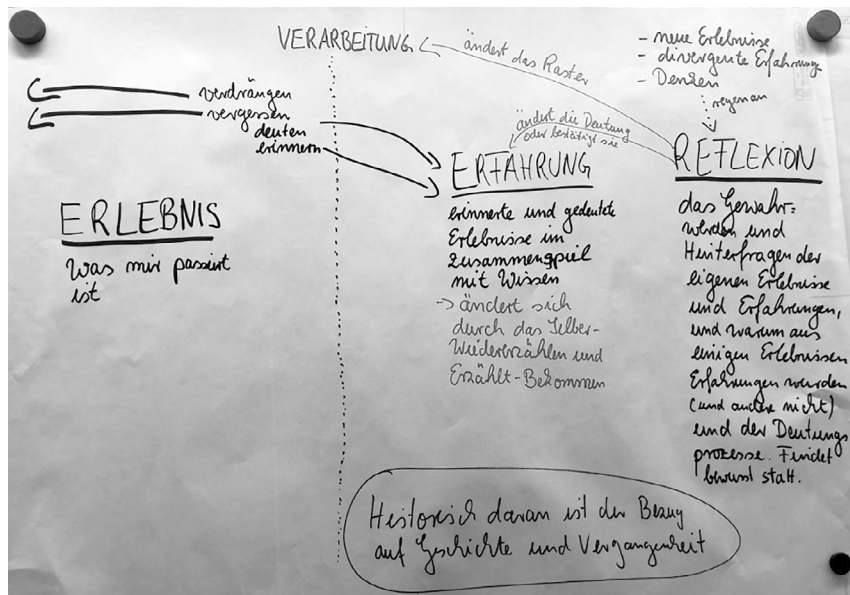 VERARBEITUNG
ändert das Raster
- neue Erlebnisse
- divergente Erfahrung
- Denken
regen an
verdrängen
vergessen
deuten
erinnern
ändert die Deutung
oder bestätigt sie
ERLEBNIS
Was mir passiert
ist
ERFAHRUNG
erinnerte und gedeutete
Erlebnisse im
Zusammenspiel
mit Wissen
-> ändert sich
durch das Selber-
Wiedererzählen und
Erzählt-Bekommen
REFLEXION
das Gewahr=
werden und
Hinterfragen der
eigenen Erlebnisse
und Erfahrungen,
und warum aus
einigen Erlebnissen
Erfahrungen wurden
(und andere nicht)
und der Deutungs
prozesse. Findet
bewusst statt.
Historisch daran ist der Bezug
auf Geschichte und Vergangenheit